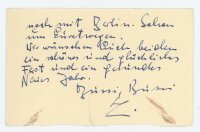 noch mit Berlin. Schon
um Euretwegen.
Wir wünschen Euch beiden
ein schönes und glückliches
Fest und ein gesundes
Neues Jahr.
Bussi, Bussi